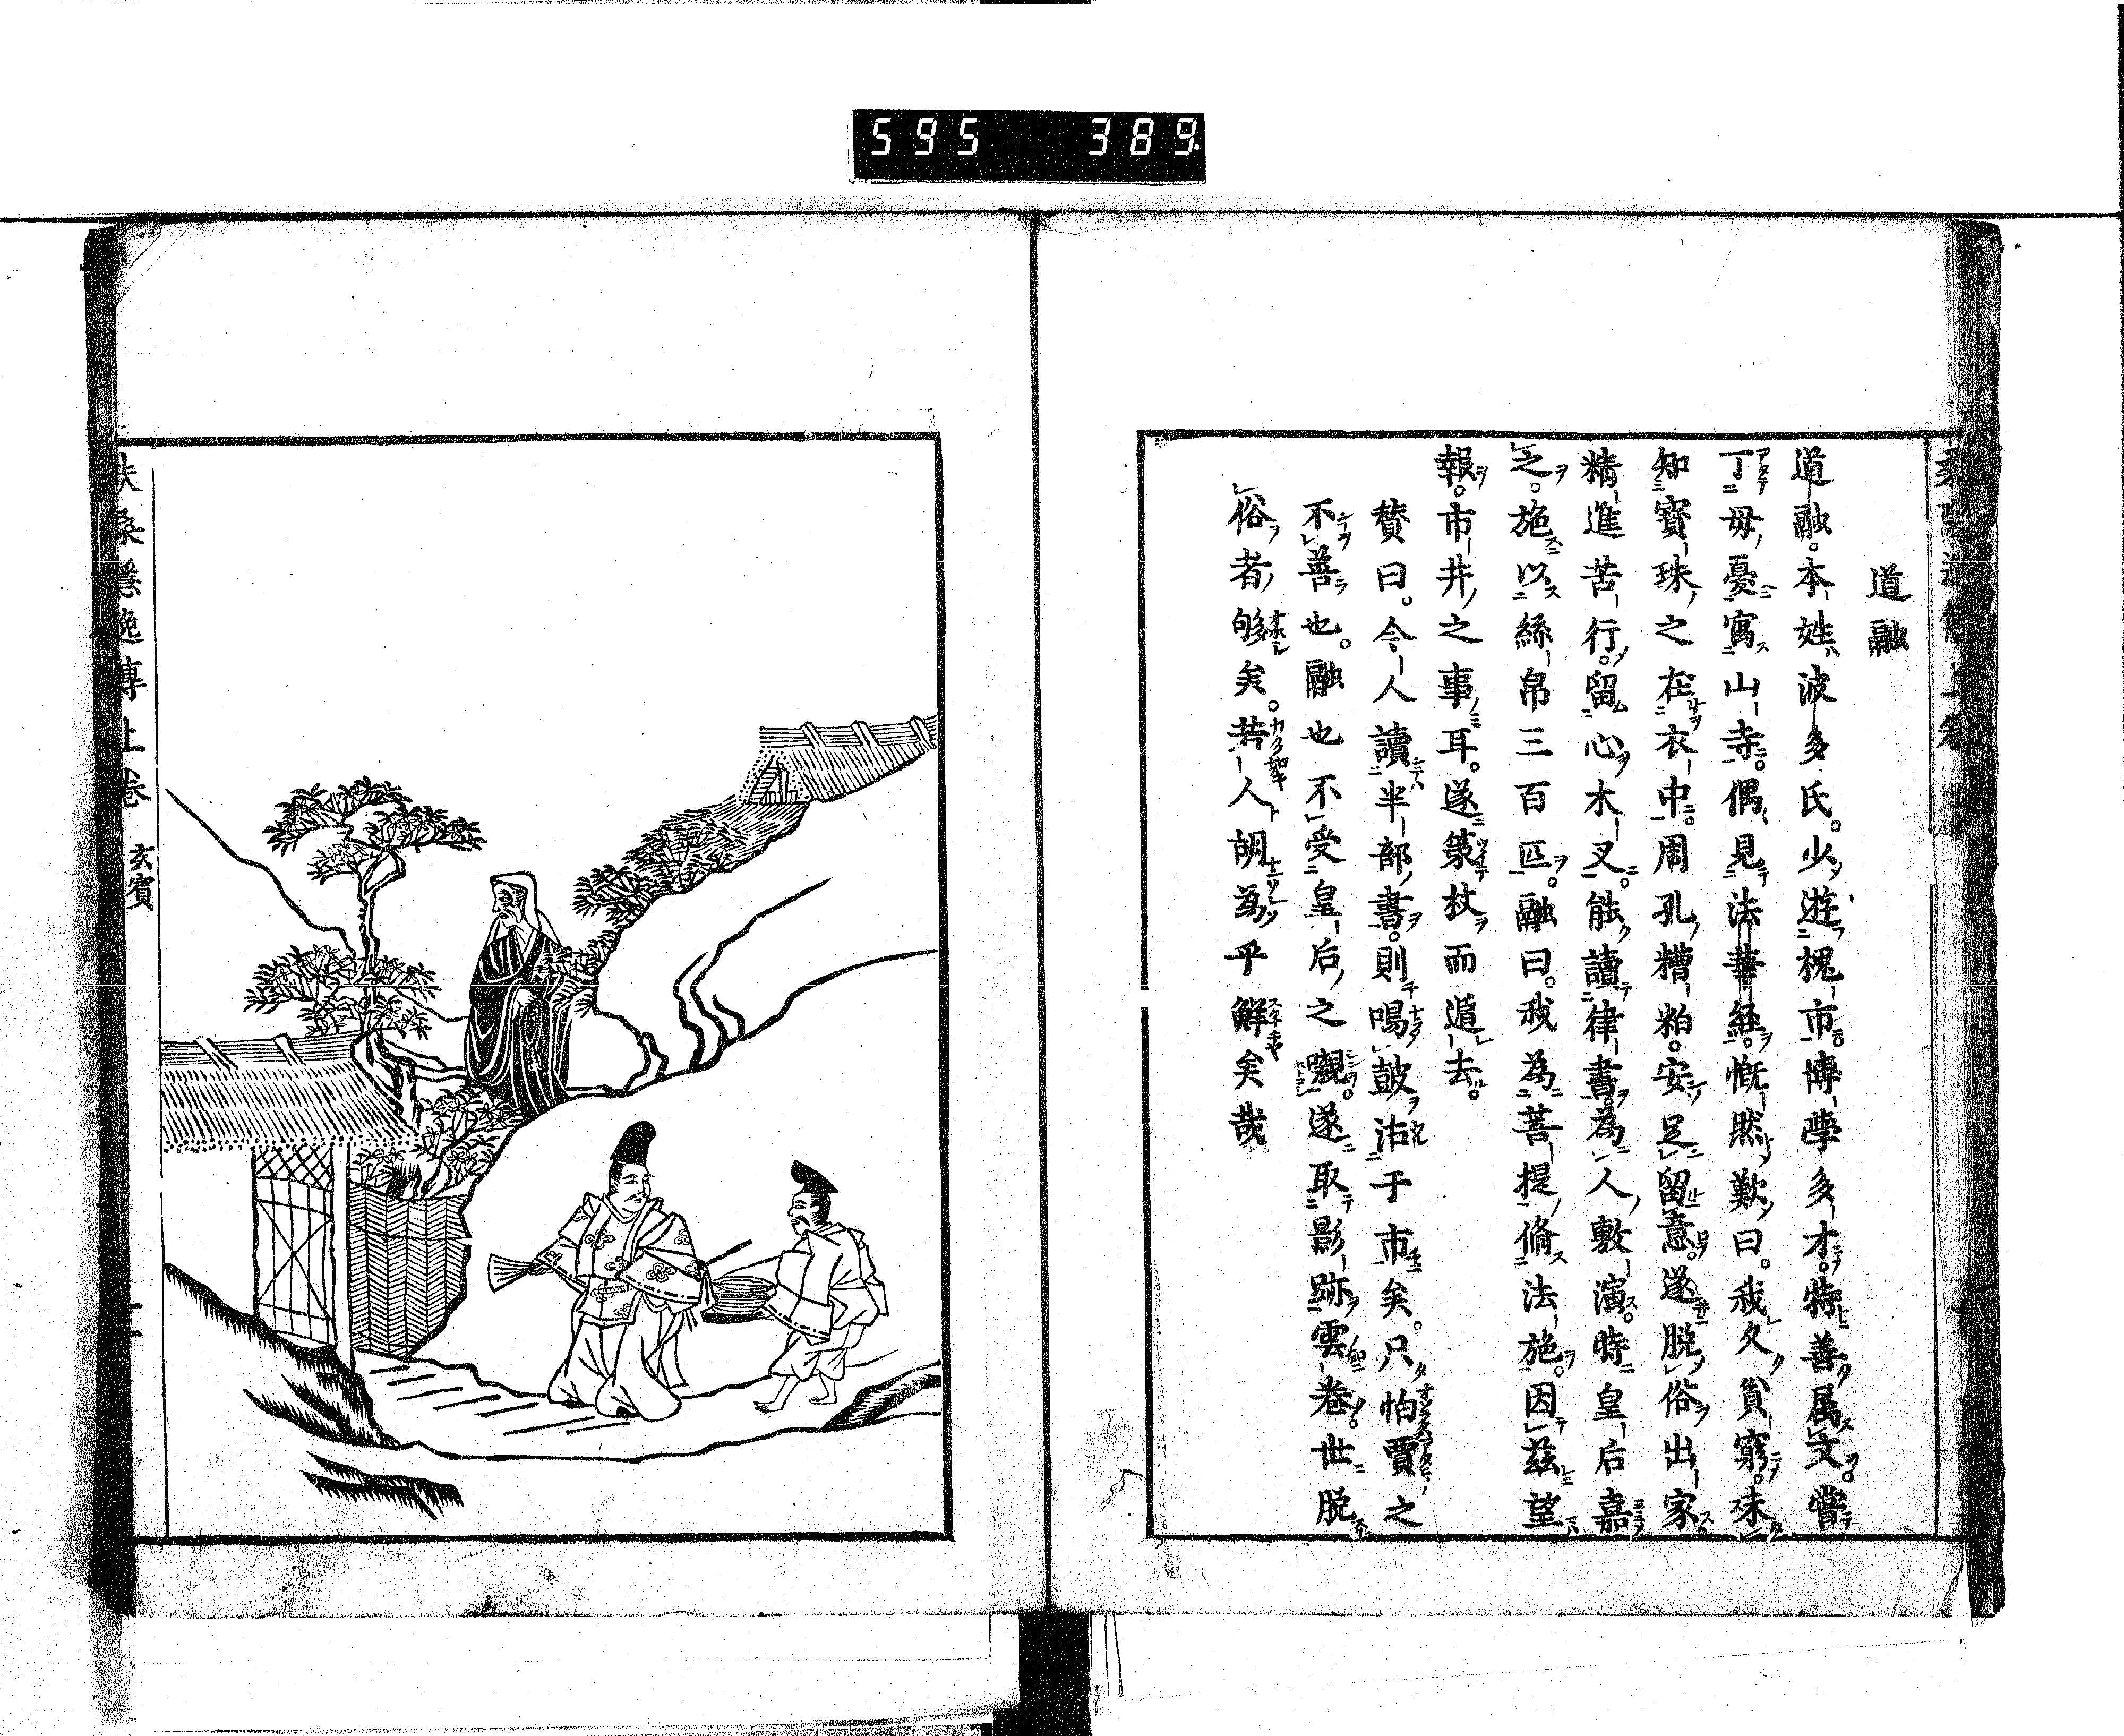 595 389
道融
道融。本姓波多氏。少遊槐市。博學多才。特善属文。嘗
丁母憂寓山寺。偶見法華経。慨然歎曰。我久貧窮。未
知寳珠之在衣中。周孔糟粕。安足留意。遂脱俗出家
精進苦行。留心木叉。能讀律書。為人敷演。時皇后嘉
之。施以絲帛三百匹。融曰。我為菩提脩法施。因茲望
報。市井之事耳。遂策杖而遁去。
賛曰。今人讀半部書。則鳴鼓沽于市矣。只怕賈之
不善也。融也不受皇后之嚫。遂取影跡雲巻。世脱
俗者夥矣。若人胡為乎鮮矣哉
扶桑隱逸傳上巻 玄賓